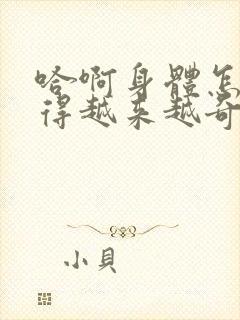 哈啊身體怎
得越來越奇
小貝